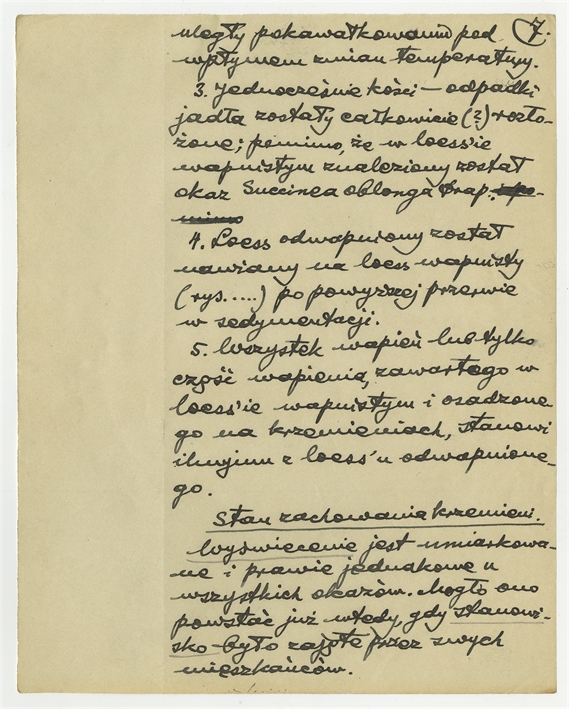 7.
uległy pokawałkowaniu pod
wpływem zmian temperatury.
3. Jednocześnie kości – odpadki
jadła zostały całkowicie (?) rozło-
żone; pomimo, że w loess'ie
wapnistym znaleziony został
okaz Succinea oblonga Drap.
4. Loess odwapniony został
nawiany na loess wapnisty
(rys.....) po powyższej przerwie
w sedymentacji.
5. Wszystek wapień lub tylko
część wapienia, zawartego w
loess'ie wapnistym i osadzone-
go na krzemieniach, stanowi
iluvjum z loess'u odwapnione-
go.
Stan zachowania krzemieni.
Wyświecenie jest umiarkowa-
ne i prawie jednakowe u
wszystkich okazów. Mogło ono
powstać już wtedy, gdy stanowi-
sko było zajęte przez swych
mieszkańców.